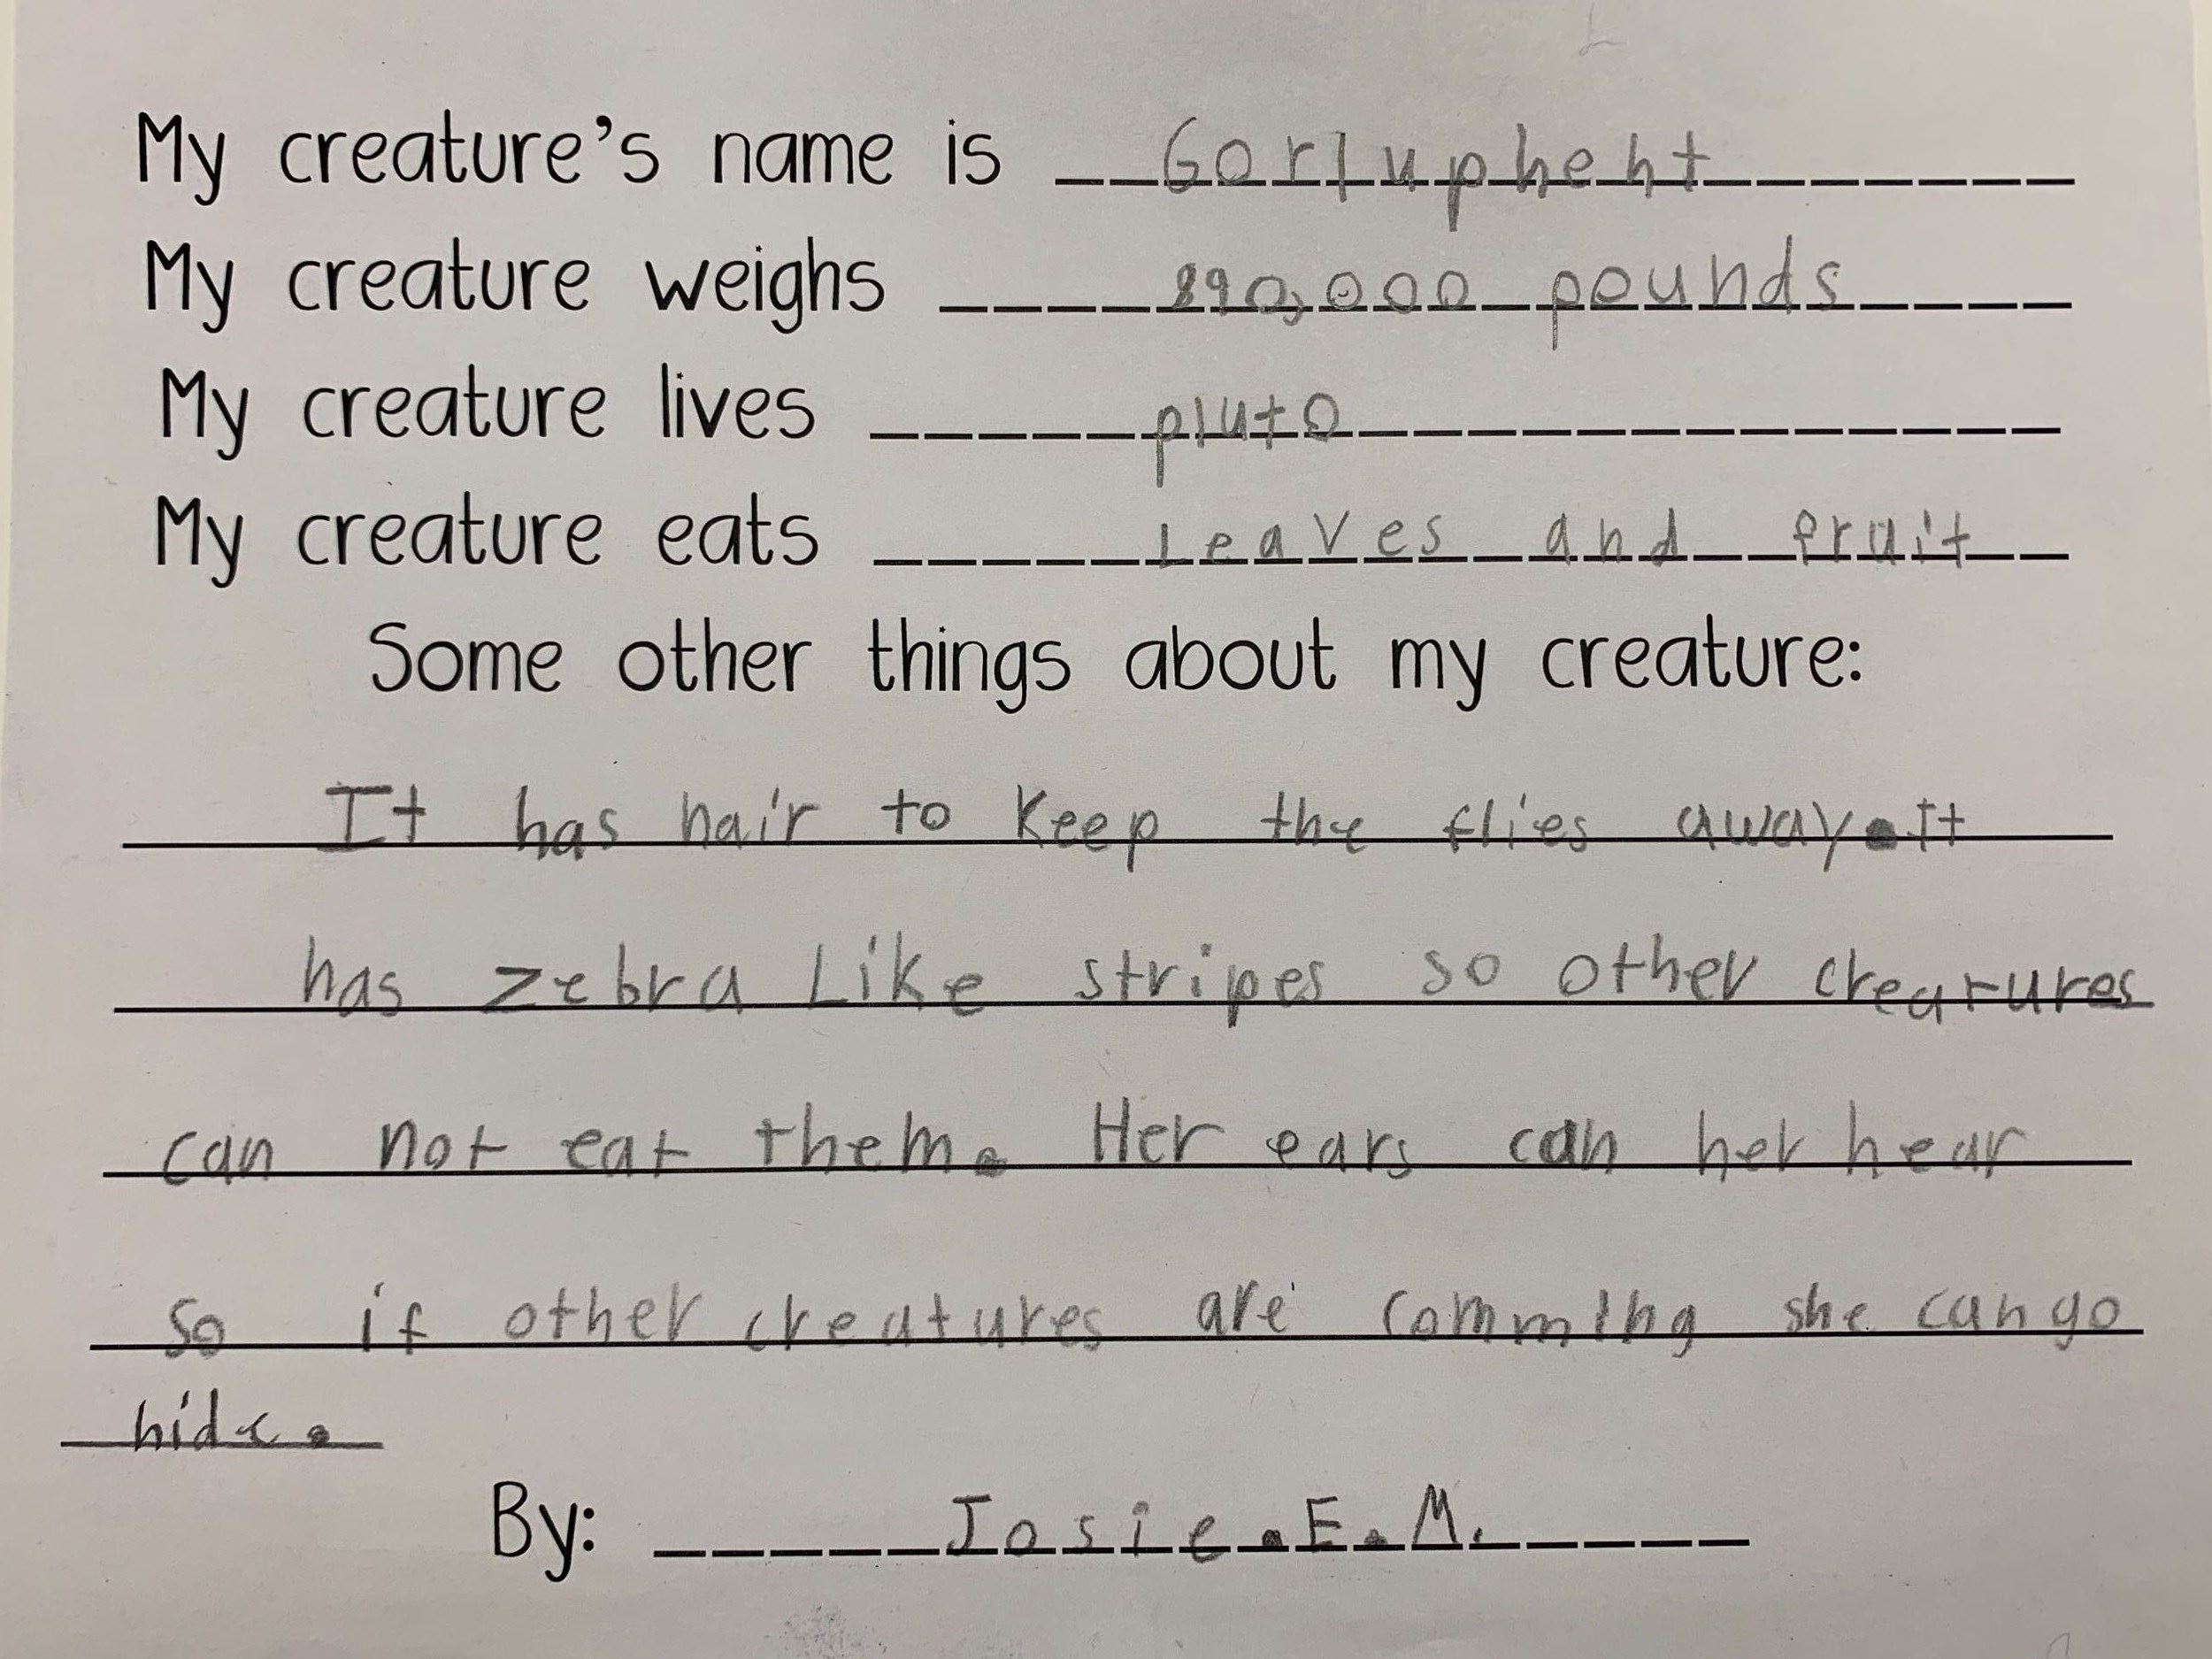 My creature's name is Gorluphent
My creature weighs 890,000 pounds
My creature lives pluto
My creature eats Leaves and fruit
Some other things about my creature:
It has hair to Keep the flies away. It
has zebra Like stripes so other creatures
can not eat them. Her ears can her hear
So if other creatures are comming she can go
hide.
By: Josie.E.M.